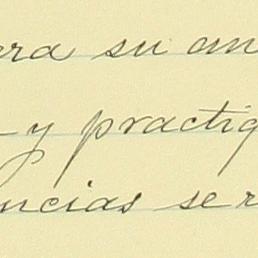 ara su an
y practiq
ncias se r